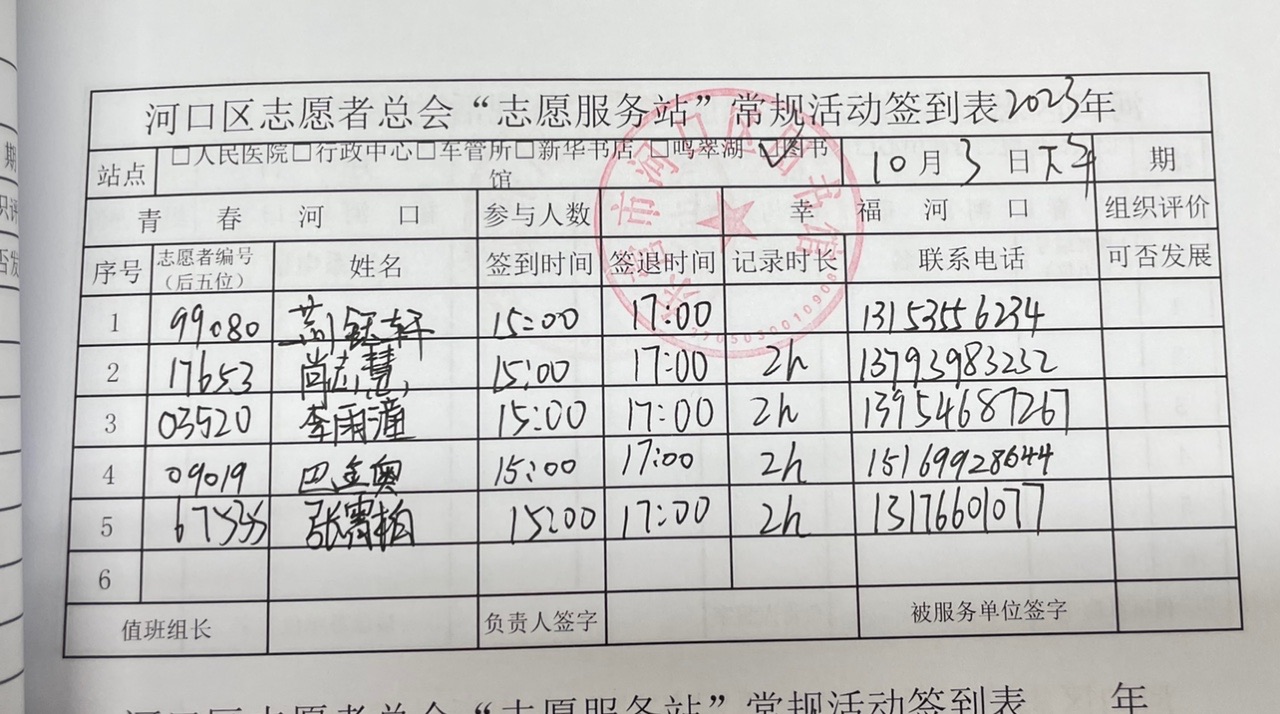 河口区志愿者总会“志愿服务站”常规活动签到表2023年
站点 □人民医院□行政中心□车管所□新华书店 □鸣翠湖 ☑图书馆 10月3日 期
青春河口 参与人数 幸福河口 组织评价
序号 志愿者编号（后五位） 姓名 签到时间 签退时间 记录时长 联系电话 可否发展
1 99080 15:00 17:00 13153556234
2 17653 尚志慧 15:00 17:00 2h 13793983232
3 03520 李雨潼 15:00 17:00 2h 13954687267
4 09019 巴金奥 15:00 17:00 2h 15169928644
5 67535 张雪柏 15:00 17:00 2h 13176601077
6
值班组长 负责人签字 被服务单位签字
东营市河口区图书馆
河口区志愿者总会“志愿服务站”常规活动签到表 年